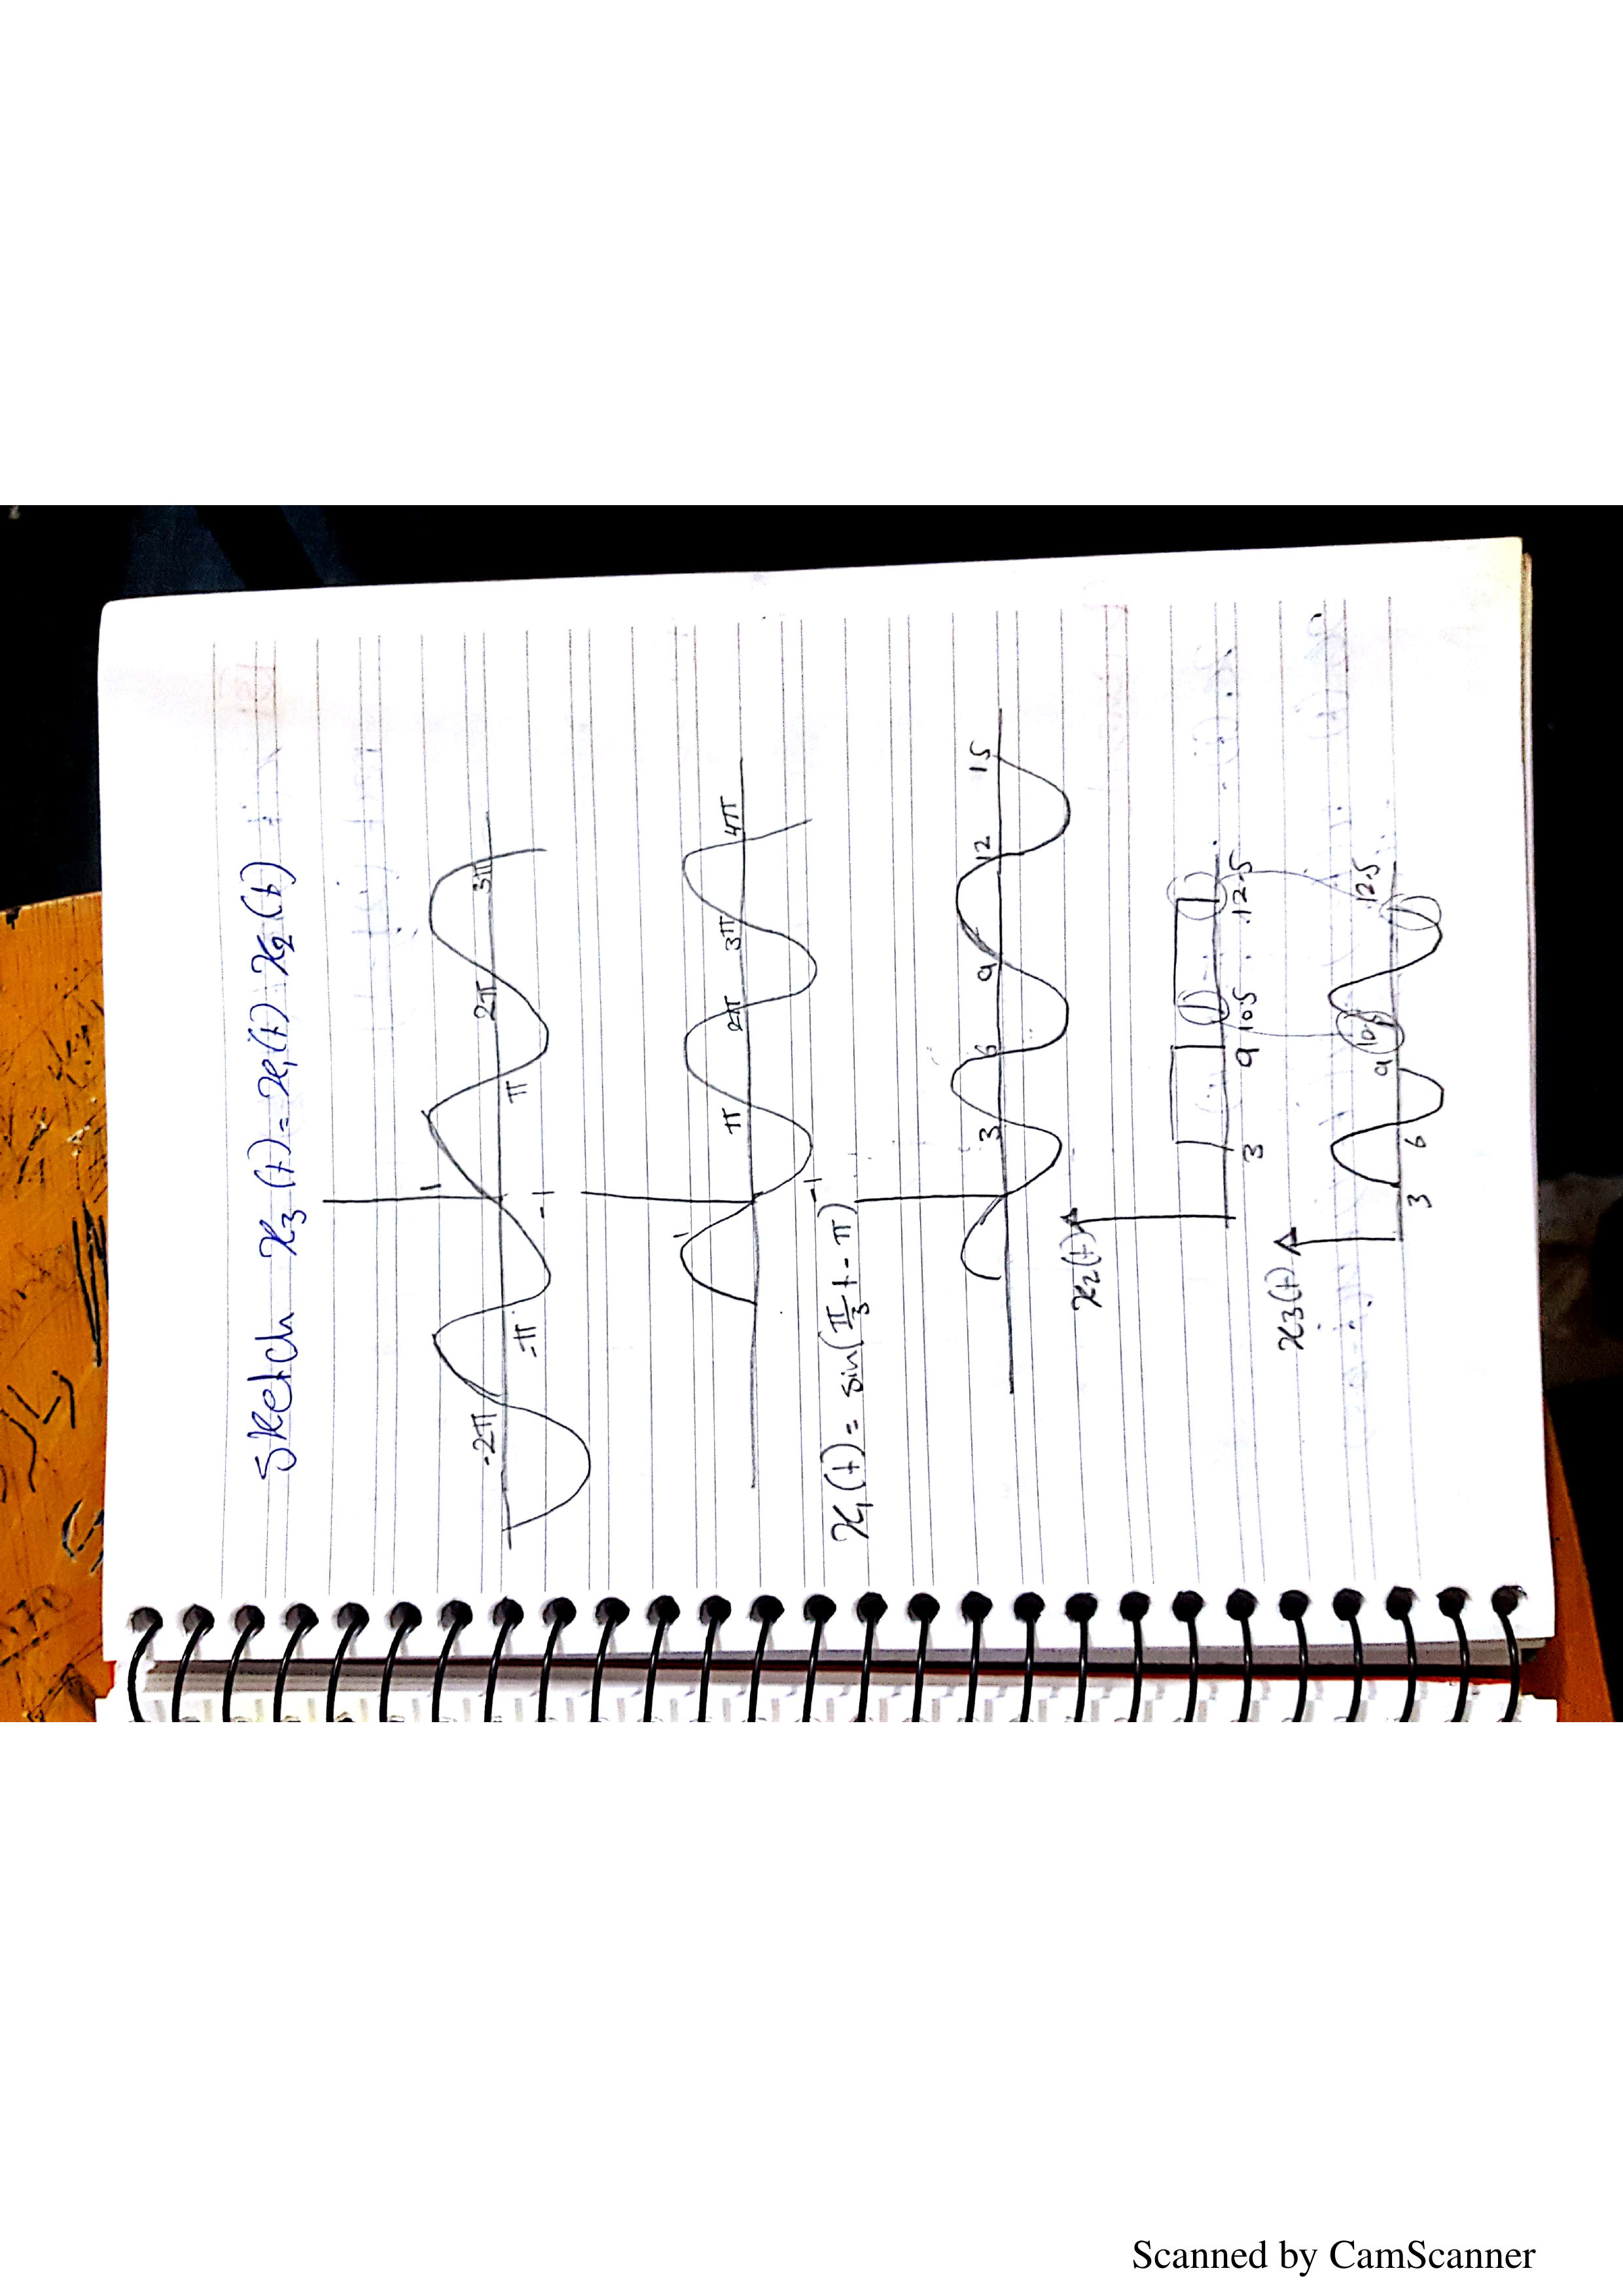 Sketch x₃(t) = x₁(t) · x₂(t)
1
-2π -π π 2π 3π
-1
1
π 2π 3π 4π
-1
x₁(t) = sin(π/3 t - π)
3 6 9 12 15
x₂(t)
3 9 10.5 12.5
x₃(t)
3 6 9 10.5 12.5
Scanned by CamScanner